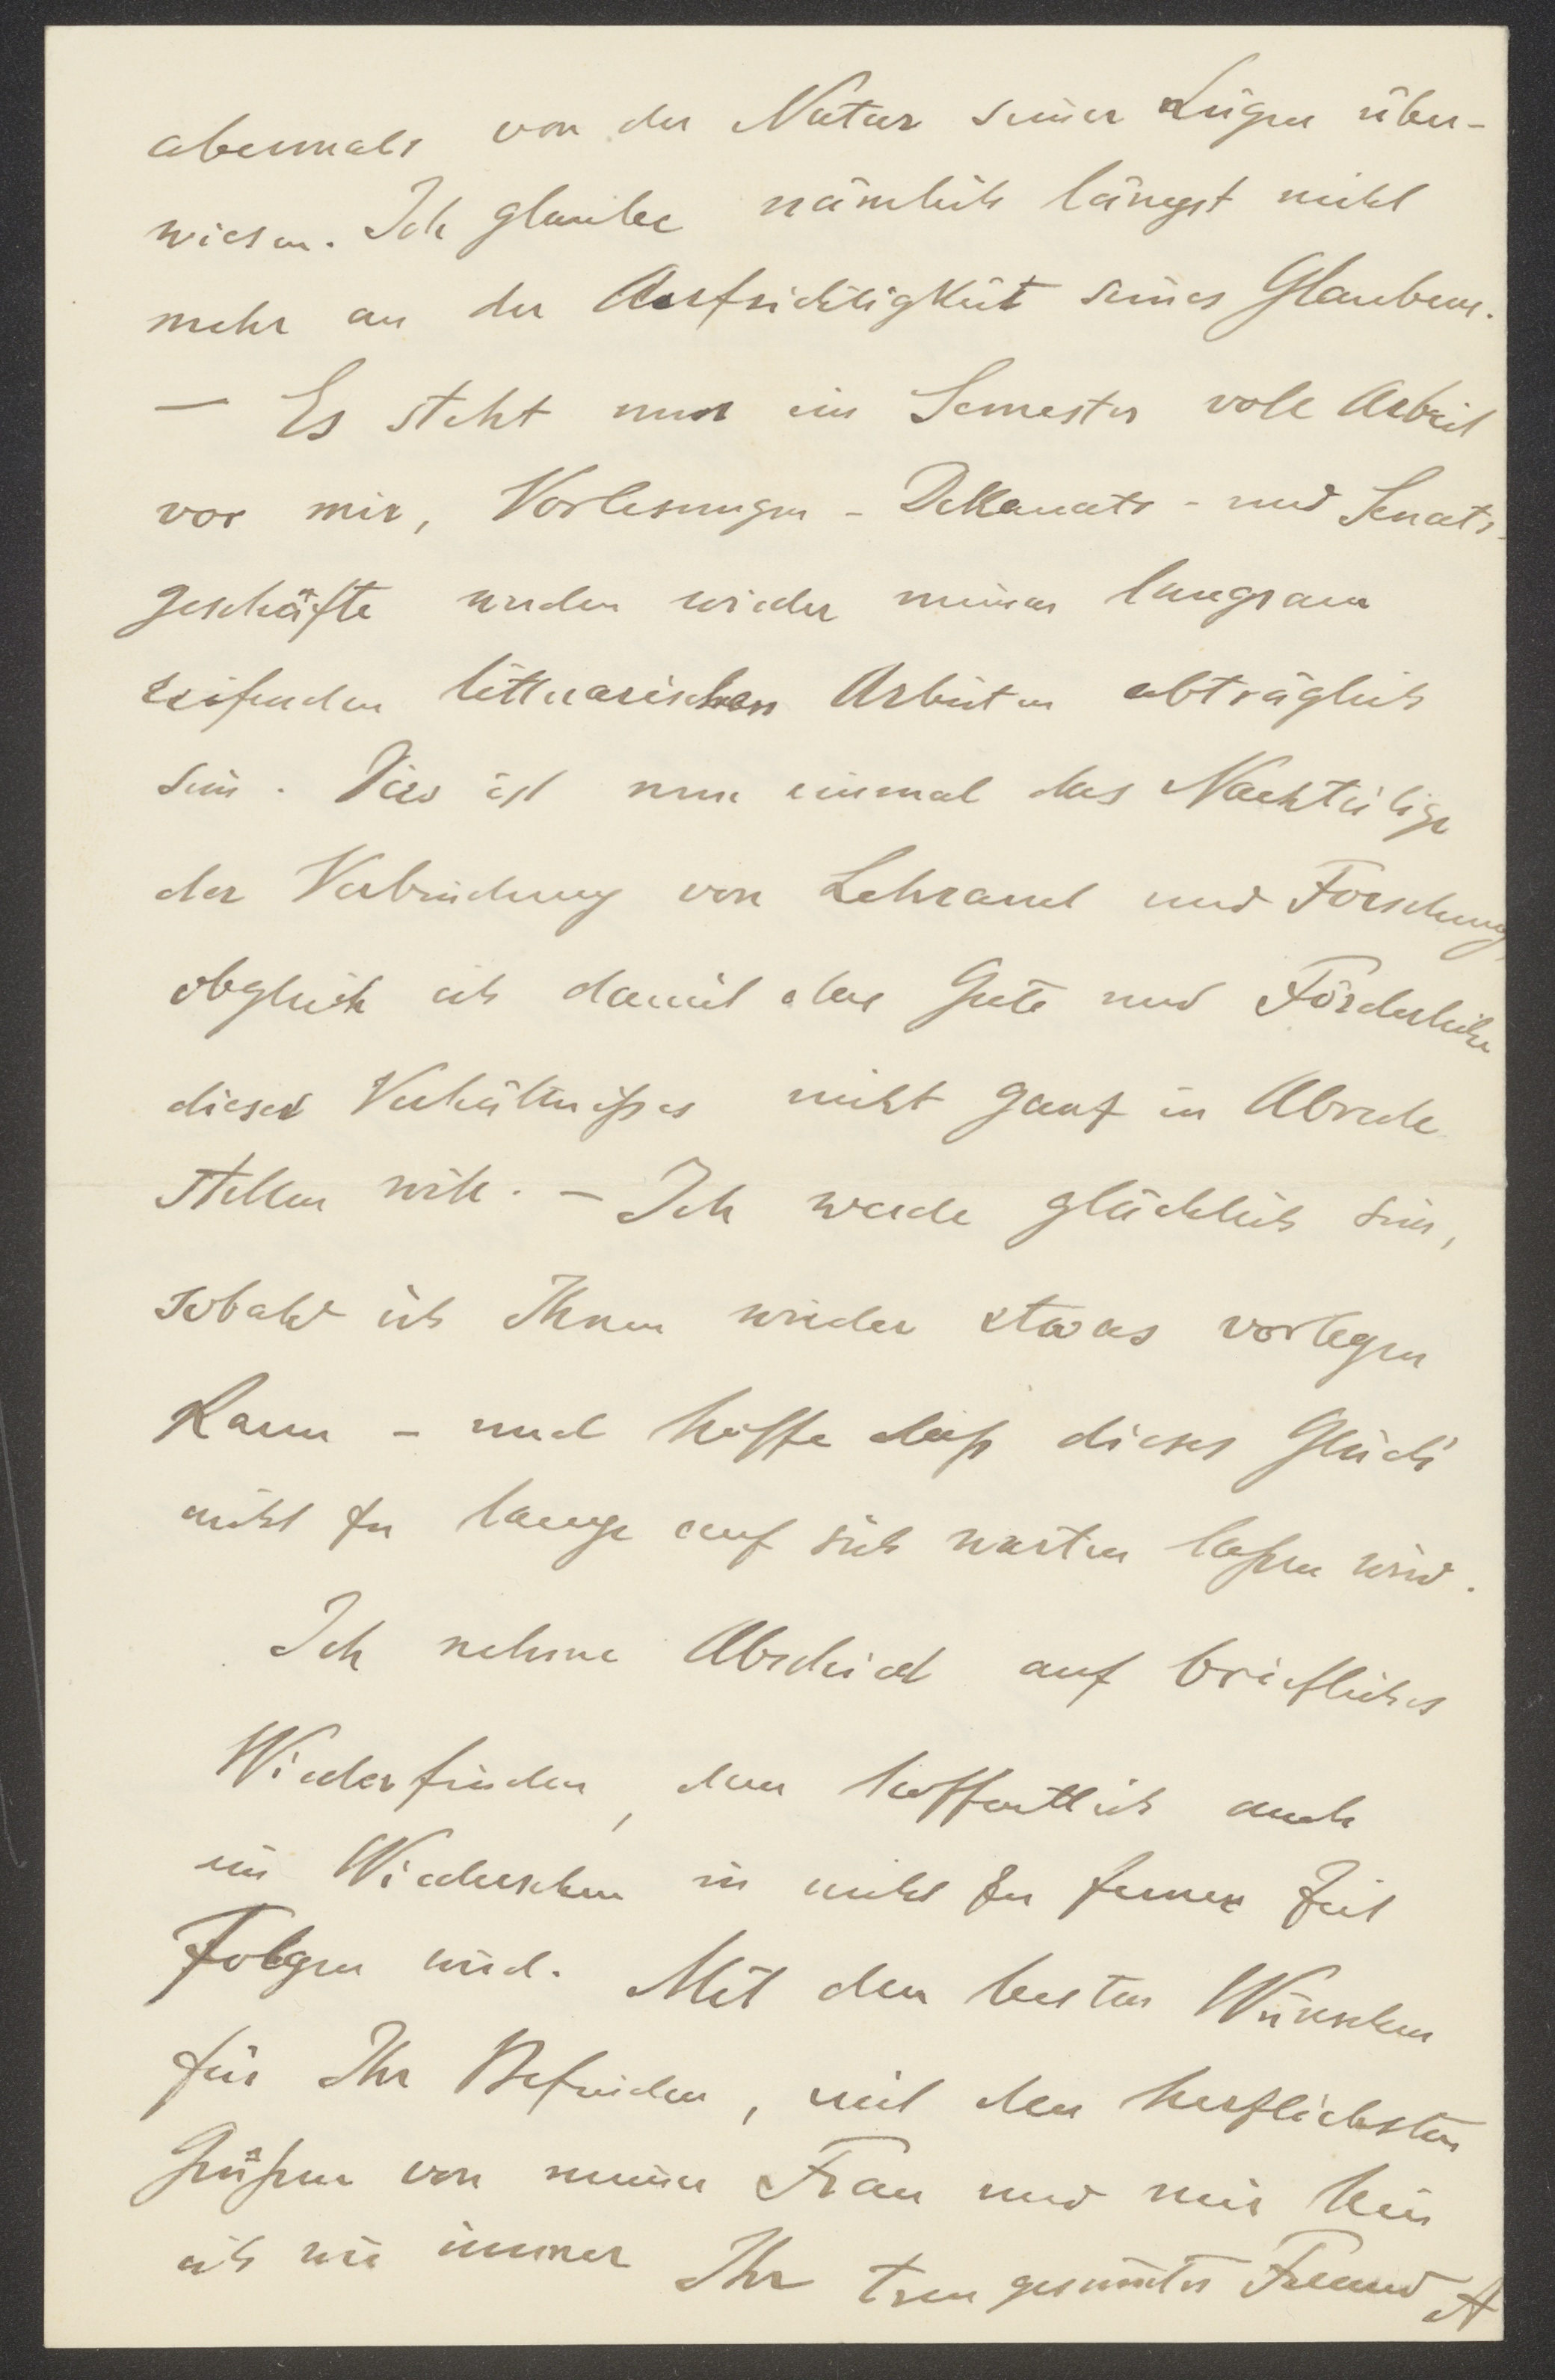 abermals von der Natur seiner Lügen über-
wiesen. Ich glaube nämlich längst nicht
mehr an der Aufrichtigkeit seines Glaubens.
— Es steht nun ein Semester voll Arbeit
vor mir, Vorlesungen - Dekanats - und Senats-
geschäfte werden wieder meinen langsam
reifenden litterarischen Arbeiten abträglich
sein. Dies ist nun einmal das Nachteilige
der Verbindung von Lehramt und Forschung,
obgleich ich damit das Gute und Förderliche
dieses Verhältnißes nicht ganz in Abrede
stellen will. — Ich werde glücklich sein,
sobald ich Ihnen wieder etwas vorlegen
kann — und hoffe daß dieses Glück
nicht zu lange auf sich warten laßen wird.
Ich nehme Abschied auf briefliches
Wiederfinden, dem hoffentlich auch
ein Wiedersehen in nicht zu ferner Zeit
Folgen wird. Mit den besten Wünschen
für Ihr Befinden, mit den herzlichsten
Grüßen von meiner Frau und mir bin
ich wie immer Ihr treu gesinnter Freund A